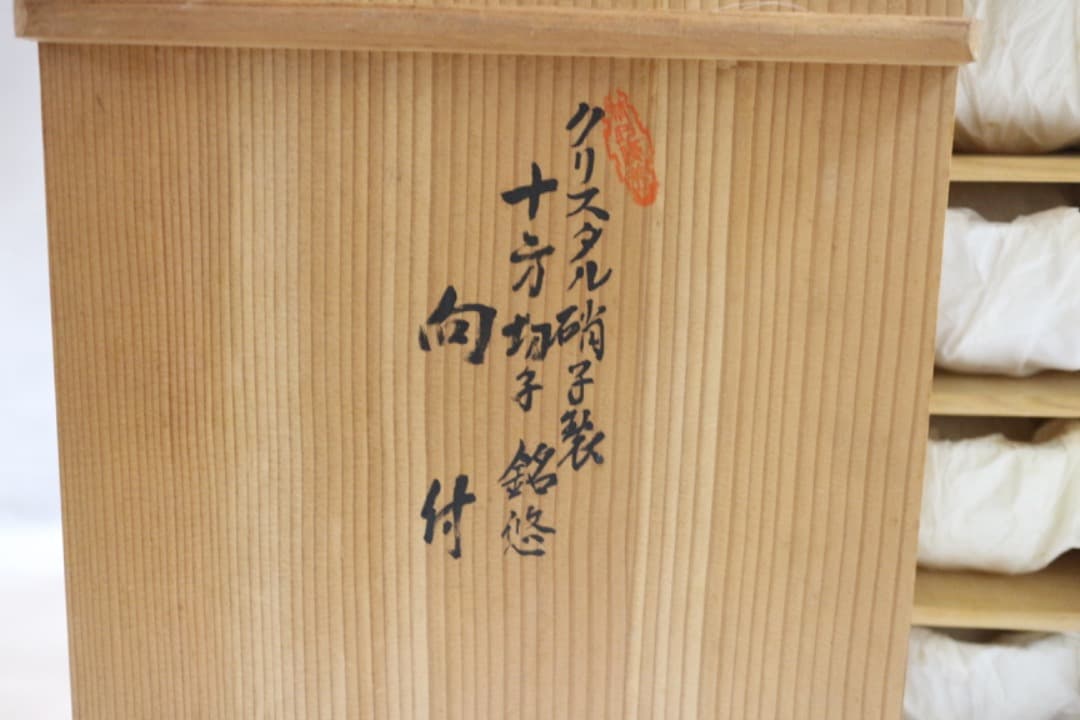 クリスタル硝子製
十方切子 銘悠
向付